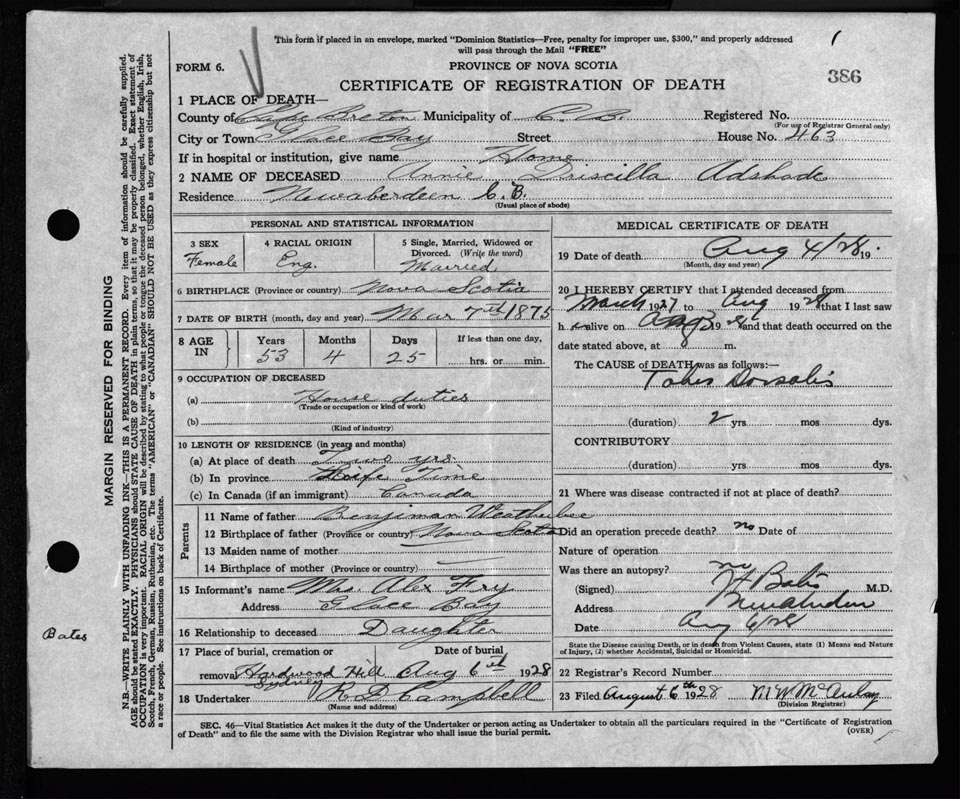 This form if placed in an envelope, marked "Dominion Statistics—Free, penalty for improper use, $300," and properly addressed
will pass through the Mail "FREE"
1
FORM 6.
PROVINCE OF NOVA SCOTIA
386
CERTIFICATE OF REGISTRATION OF DEATH
1 PLACE OF DEATH—
County of Cape Breton Municipality of C. B. Registered No.
(For use of Registrar General only)
City or Town Glace Bay Street House No. 463
If in hospital or institution, give name Home
2 NAME OF DECEASED Annie Driscilla Adshade
Residence Newaberdeen C. B.
(Usual place of abode)
PERSONAL AND STATISTICAL INFORMATION
3 SEX
Female
4 RACIAL ORIGIN
Eng.
5 Single, Married, Widowed or
Divorced. (Write the word)
Married
6 BIRTHPLACE (Province or country) Nova Scotia
7 DATE OF BIRTH (month, day and year) Mar 7th 1875
8 AGE
IN
Years
53
Months
4
Days
25
If less than one day,
hrs. or min.
9 OCCUPATION OF DECEASED
(a) House duties
(Trade or occupation or kind of work)
(b)
(Kind of industry)
10 LENGTH OF RESIDENCE (in years and months)
(a) At place of death Two yrs.
(b) In province Life Time
(c) In Canada (if an immigrant) Canada
Parents
11 Name of father Benjiman Weatherbee
12 Birthplace of father (Province or country) Nova Scotia
13 Maiden name of mother
14 Birthplace of mother (Province or country)
15 Informant's name Mrs. Alex Fry
Address Glace Bay
16 Relationship to deceased Daughter
17 Place of burial, cremation or Date of burial
removal Hardwood Hill Aug 6th 1928
Sydney
18 Undertaker R D Campbell
(Name and address)
MEDICAL CERTIFICATE OF DEATH
19 Date of death Aug 4/28 19
(Month, day and year)
20 I HEREBY CERTIFY that I attended deceased from
March 1927 to Aug 1928 that I last saw
h er alive on Aug 3 1928 and that death occurred on the
date stated above, at 8 m.
The CAUSE of DEATH was as follows:—
Tabes Dorsalis
(duration) 2 yrs mos dys.
CONTRIBUTORY
(duration) yrs mos dys.
21 Where was disease contracted if not at place of death?
Did an operation precede death? no Date of
Nature of operation
Was there an autopsy? no
(Signed) Bates M.D.
Address Newaberdeen
Date Aug 6/28
State the Disease causing Death, or in death from Violent Causes, state (1) Means and Nature
of Injury, (2) whether Accidental, Suicidal or Homicidal.
22 Registrar's Record Number
23 Filed August 6th 1928 M W McAulay
(Division Registrar)
SEC. 46—Vital Statistics Act makes it the duty of the Undertaker or person acting as Undertaker to obtain all the particulars required in the "Certificate of Registration
of Death" and to file the same with the Division Registrar who shall issue the burial permit.
(OVER)
MARGIN RESERVED FOR BINDING
N.B—WRITE PLAINLY WITH UNFADING INK—THIS IS A PERMANENT RECORD. Every item of information should be carefully supplied.
AGE should be stated EXACTLY. PHYSICIANS should STATE CAUSE OF DEATH in plain terms, so that it may be properly classified. Exact statement of
OCCUPATION is very important. RACIAL ORIGIN will be described by stating to what people or tongue the deceased person belonged, whether English, Irish,
Scotch, French, German, Russian, Ruthenian, etc. The terms "AMERICAN" or "CANADIAN" SHOULD NOT BE USED as they express citizenship but not
a race or people. See instructions on back of Certificate.
Bates